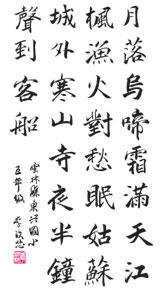 月落烏啼霜滿天江
楓漁火對愁眠姑蘇
城外寒山寺夜半鐘
聲到客船
雲林縣東國小
五年級 李